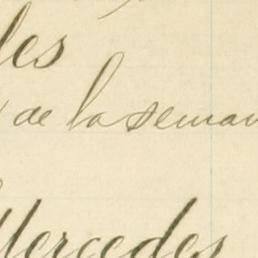 les
de la seman
Mercedes